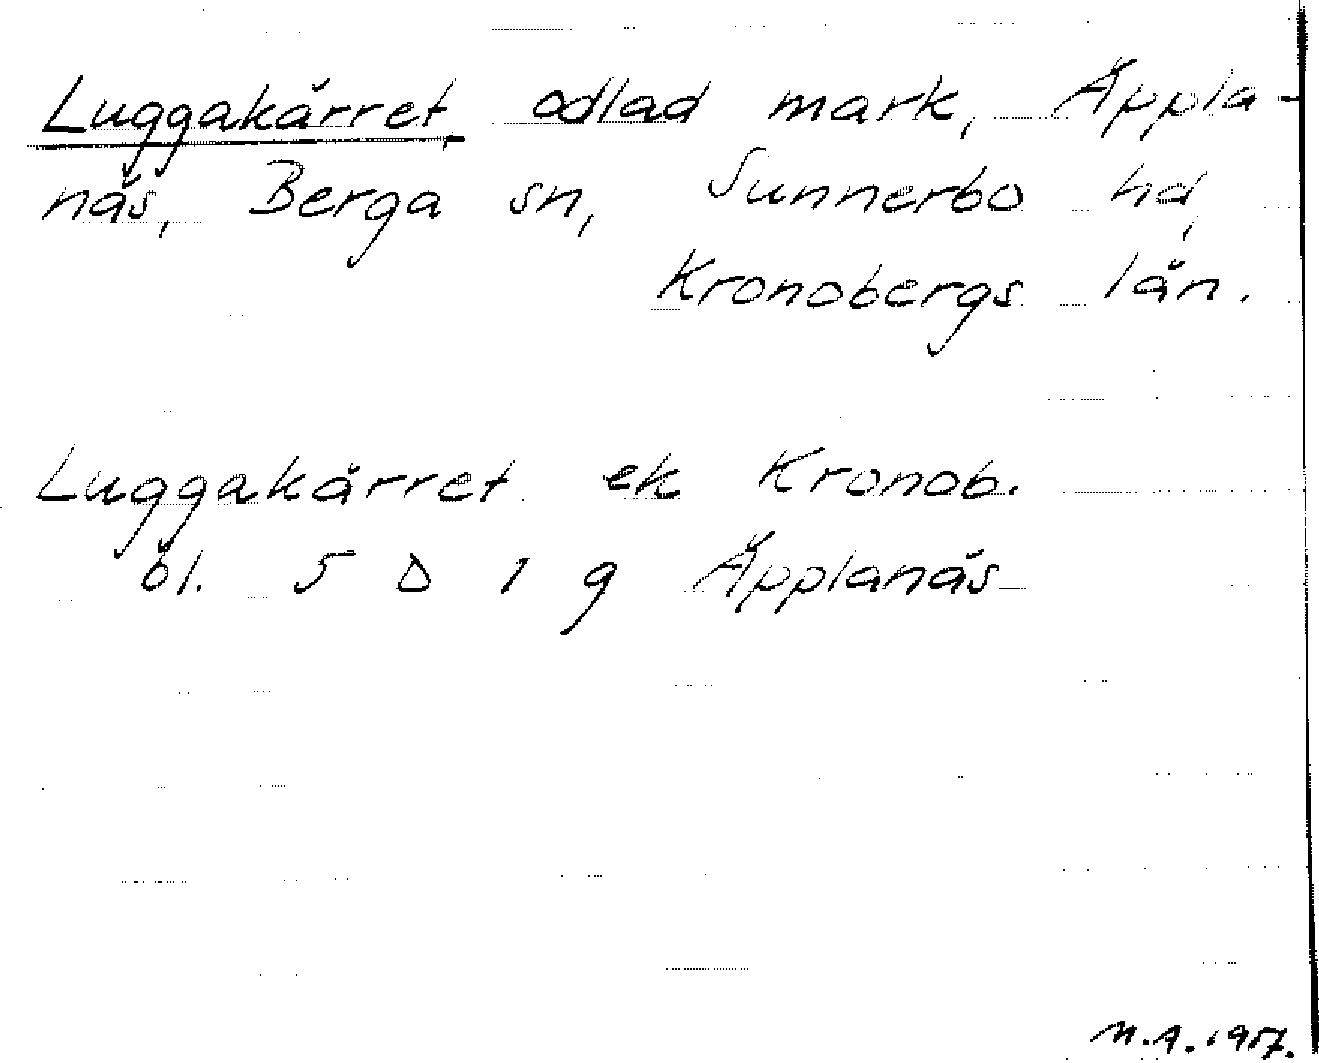 Luggakärret, odlad mark, Äppla-
näs, Berga sn, Sunnerbo hd,
Kronobergs län.
Luggakärret ek Kronob.
öl. 5 D 1 g Äpplanäs
N.A. 1957.